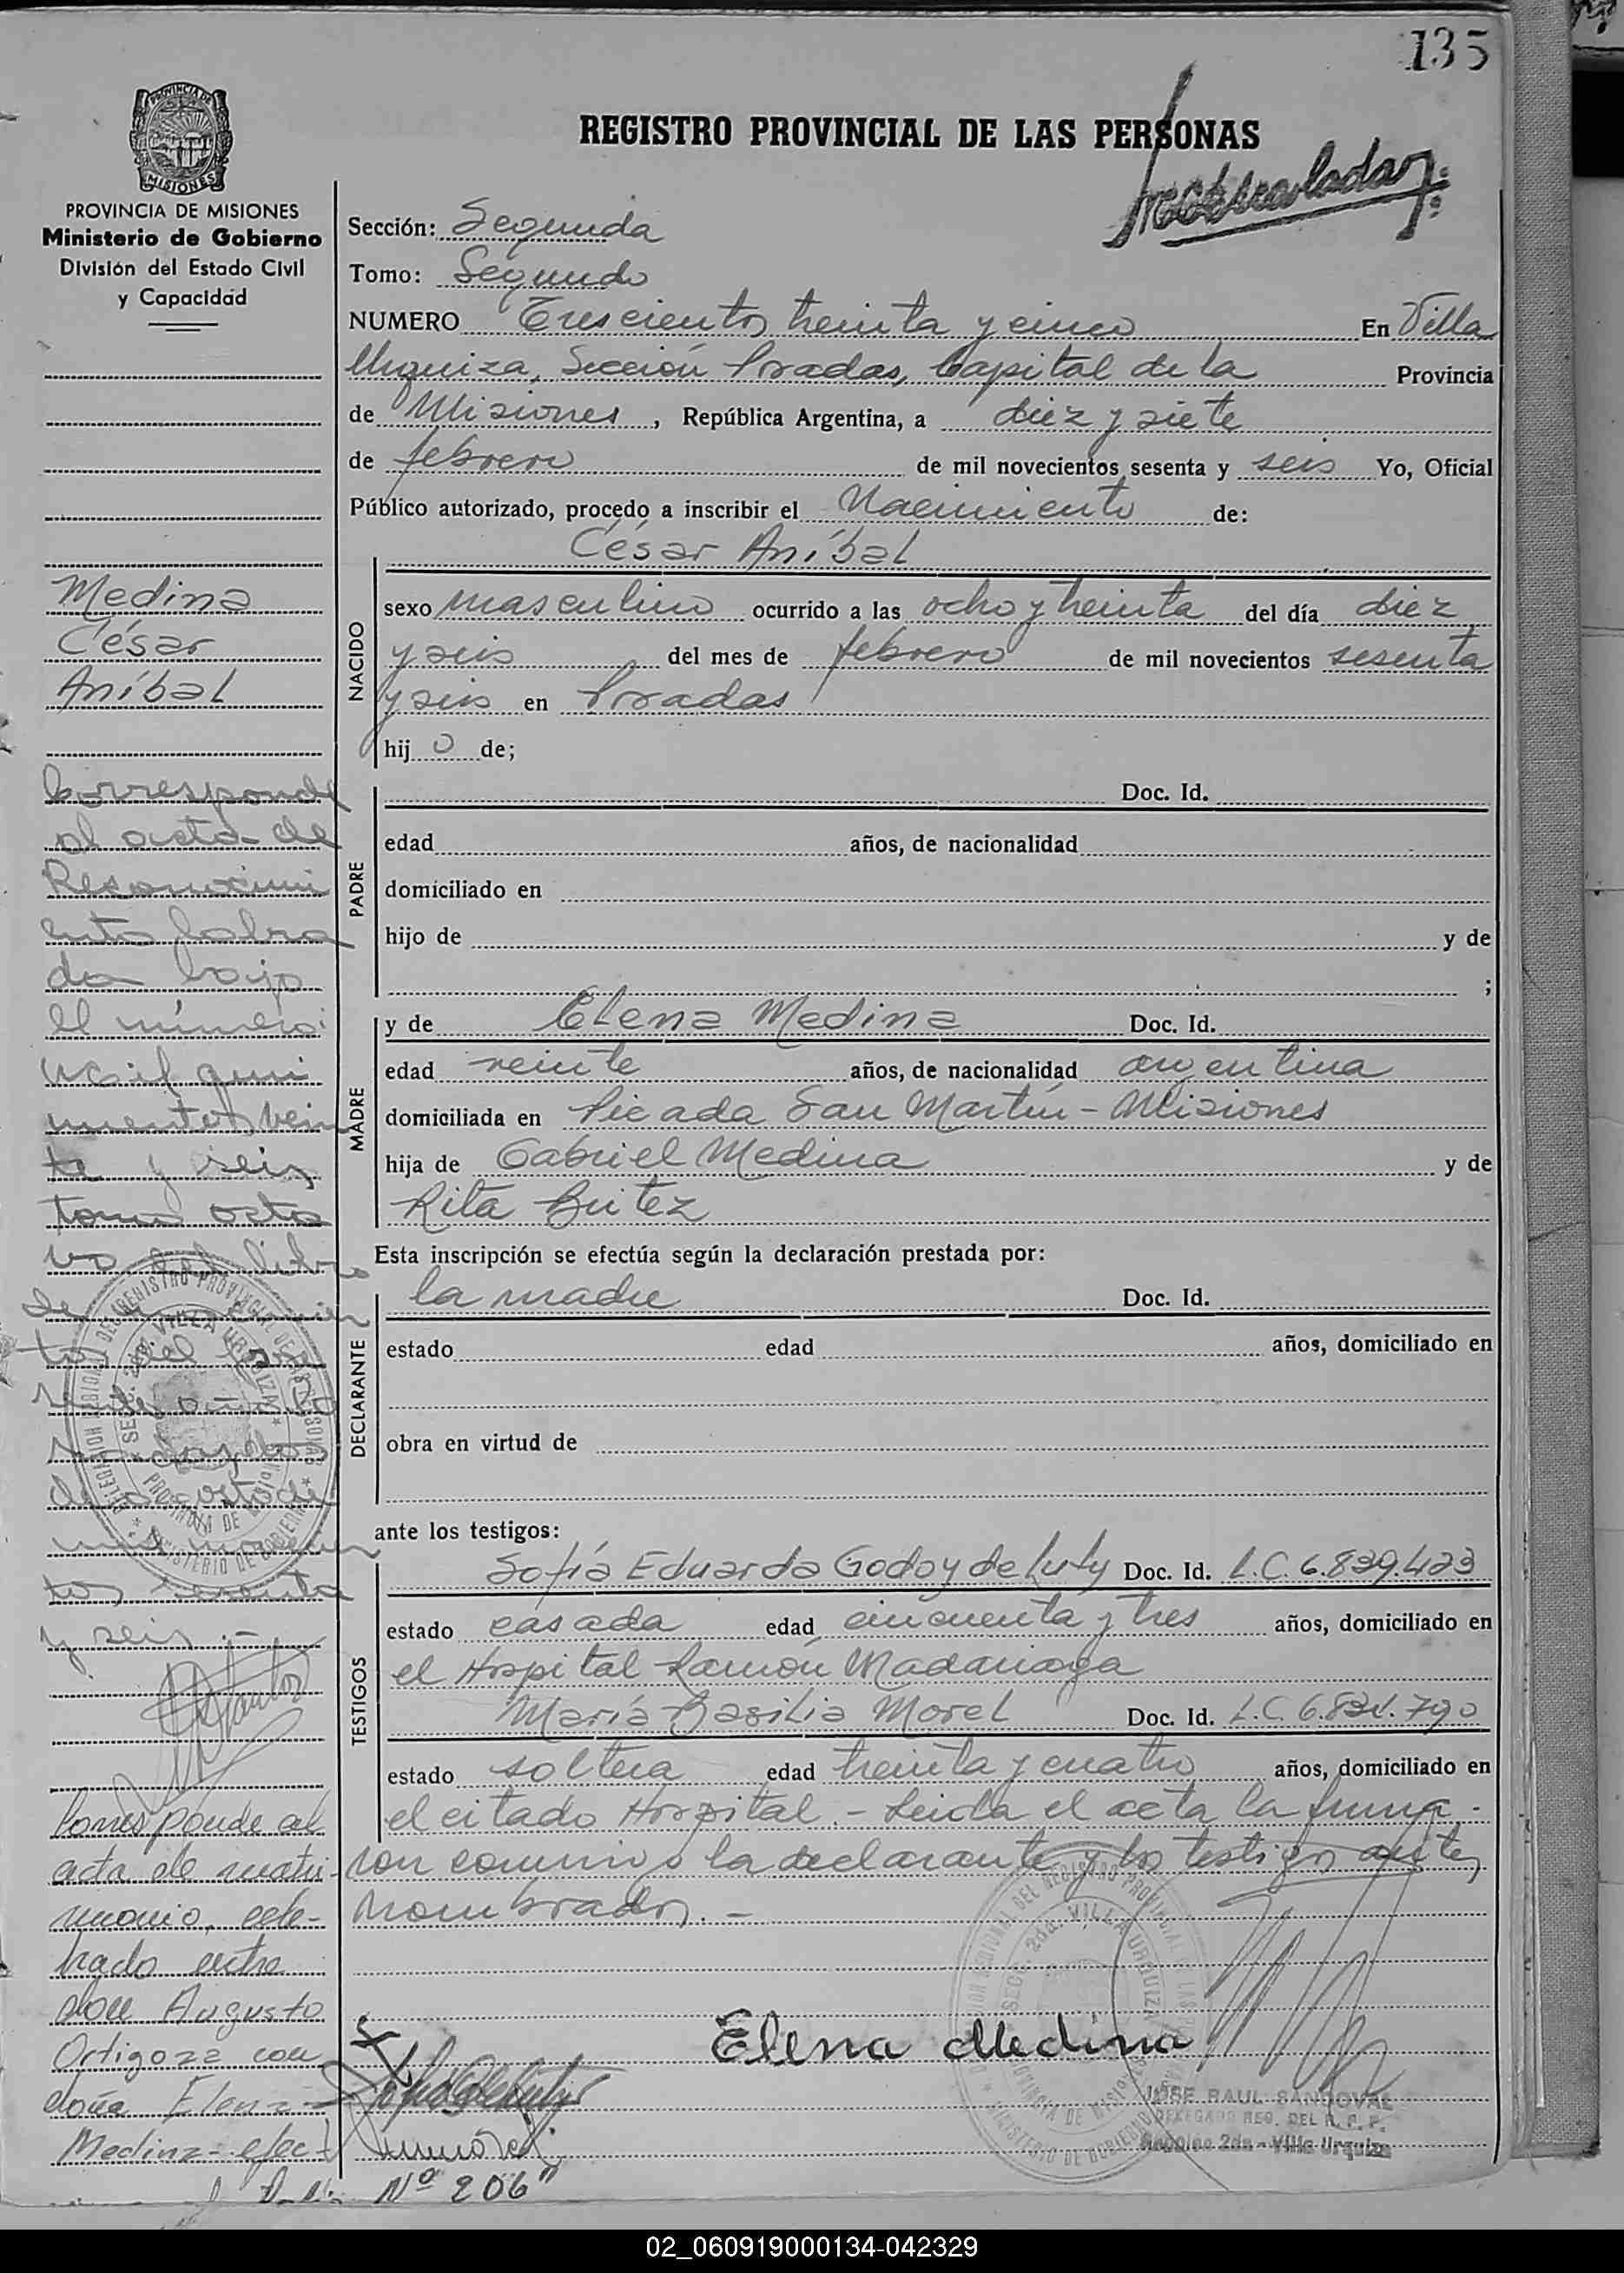 135
REGISTRO PROVINCIAL DE LAS PERSONAS
PROVINCIA DE
MISIONES
PROVINCIA DE MISIONES
Ministerio de Gobierno
División del Estado Civil
y Capacidad
Sección: Segunda
Tomo: Segundo
NUMERO Trescientos treinta y cinco En Villa
Urquiza, Sección Posadas, Capital de la Provincia
de Misiones, República Argentina, a diez y siete
de febrero de mil novecientos sesenta y seis Yo, Oficial
Público autorizado, procedo a inscribir el Nacimiento de:
César Aníbal
NACIDO
sexo masculino ocurrido a las ocho y treinta del día diez
y seis del mes de febrero de mil novecientos sesenta
y seis en Posadas
hij o de;
PADRE
Doc. Id.
edad años, de nacionalidad
domiciliado en
hijo de y de
;
MADRE
y de Elena Medina Doc. Id.
edad veinte años, de nacionalidad argentina
domiciliada en Picada San Martín - Misiones
hija de Gabriel Medina y de
Rita Britez
Esta inscripción se efectúa según la declaración prestada por:
DECLARANTE
la madre Doc. Id.
estado edad años, domiciliado en
obra en virtud de
ante los testigos:
TESTIGOS
Sofía Eduarda Godoy de Doc. Id. L.C. 6.839.423
estado casada edad cincuenta y tres años, domiciliado en
el Hospital Ramón Madariaga
María Basilia Morel Doc. Id. L.C.
estado soltera edad treinta y cuatro años, domiciliado en
el citado Hospital. - Leida el acta la firma
con conmigo la declarante y los testigos antes
nombrados. -
Elena Medina
JOSE RAUL SANDOVAL
DELEGADO REG. DEL R. P. P.
Sección 2da - Villa Urquiza
Medina
César
Aníbal
Corresponde
al acta de
Reconocimi
ento labra
da bajo
el número
mil quini
entos vein
te y seis
tomo octa
vo del libro
de
tos del
de
tos sesenta
y seis.-
Corresponde al
acta de matri-
monio, cele-
brado entre
don Augusto
Ortigoza con
doña Elena
Medina - efec-
Nº 206"
02_060919000134-042329